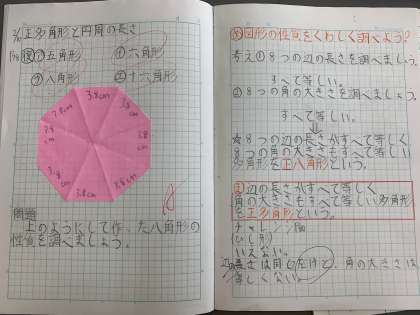 正多角形と円周の長さ
五角形
六角形
八角形
十六角形
3.8cm
3.8
cm
3.8
cm
3.8cm
3.8cm
3.8
cm
3.8
cm
3.8cm
問題
上のようにして作った八角形の
性質を調べましょう。
図形の性質をくわしく調べよう?
考え①8つの辺の長さを調べましょう。
すべて等しい。
②8つの角の大きさを調べましょう。
すべて等しい。
☆8つの辺の長さがすべて等しく
8つの角の大きさもすべて等しい
多角形を正八角形という。
辺の長さがすべて等しく
角の大きさもすべて等しい多角形
を正多角形という。
チャレンジ
ひし形
いえない。
辺の長さは同じだけど、角の大きさは
等しくない。